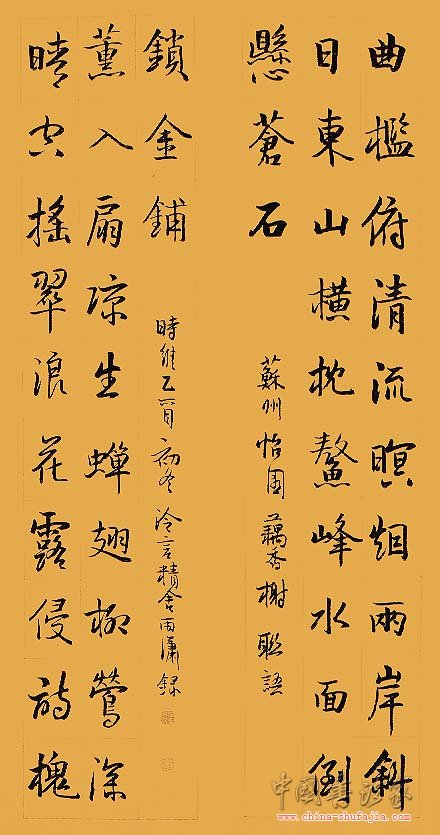 曲檻俯清流暝烟兩岸斜
日東山橫枕鰲峰水面倒
懸蒼石
蘇州怡園藕香榭聯語
晴空搖翠浪花露侵詩槐
薰入扇凉生蟬翅柳鶯深
鎖金鋪
時維乙酉初冬冷言精舍雨瀟録
中国书法家
www.china-shufajia.com